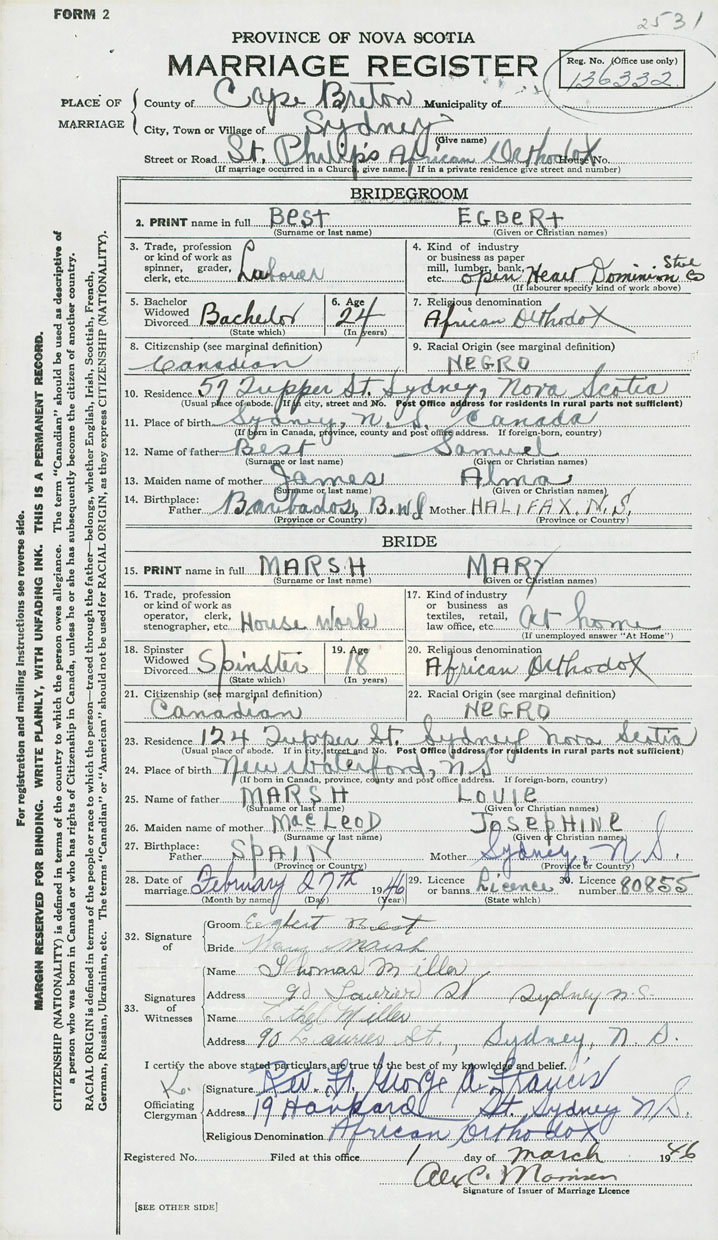 FORM 2
2531
PROVINCE OF NOVA SCOTIA
MARRIAGE REGISTER
Reg. No. (Office use only)
136332
PLACE OF MARRIAGE
County of Cape Breton Municipality of
City, Town or Village of Sydney
(Give name)
Street or Road St. Philip's African Orthodox House No.
(If marriage occurred in a Church, give name. If in a private residence give street and number)
BRIDEGROOM
2. PRINT name in full BEST EGBERT
(Surname or last name) (Given or Christian names)
3. Trade, profession or kind of work as spinner, grader, clerk, etc. Labourer
4. Kind of industry or business as paper mill, lumber, bank, etc. open Heart Dominion Steel Co
(If labourer specify kind of work above)
5. Bachelor Widowed Divorced Bachelor
(State which)
6. Age 24
(In years)
7. Religious denomination
African Orthodox
8. Citizenship (see marginal definition)
Canadian
9. Racial Origin (see marginal definition)
NEGRO
10. Residence 57 Tupper St. Sydney, Nova Scotia
(Usual place of abode. If in city, street and No. Post Office address for residents in rural parts not sufficient)
11. Place of birth Sydney, N.S. Canada
(If born in Canada, province, county and post office address. If foreign-born, country)
12. Name of father Best Samuel
(Surname or last name) (Given or Christian names)
13. Maiden name of mother James Alma
(Surname or last name) (Given or Christian names)
14. Birthplace: Father Barbados, B.W.I Mother HALIFAX. N.S.
(Province or Country) (Province or Country)
BRIDE
15. PRINT name in full MARSH MARY
(Surname or last name) (Given or Christian names)
16. Trade, profession or kind of work as operator, clerk, stenographer, etc. House Work
17. Kind of industry or business as textiles, retail, law office, etc. At home
(If unemployed answer "At Home")
18. Spinster Widowed Divorced Spinster
(State which)
19. Age 18
(In years)
20. Religious denomination
African Orthodox
21. Citizenship (see marginal definition)
Canadian
22. Racial Origin (see marginal definition)
NEGRO
23. Residence 124 Tupper St. Sydney Nova Scotia
(Usual place of abode. If in city, street and No. Post Office address for residents in rural parts not sufficient)
24. Place of birth New Waterford, N.S
(If born in Canada, province, county and post office address. If foreign-born, country)
25. Name of father MARSH LOUIE
(Surname or last name) (Given or Christian names)
26. Maiden name of mother MacLEOD JOSEPHINE
(Surname or last name) (Given or Christian names)
27. Birthplace: Father SPAIN Mother Sydney, N.S.
(Province or Country) (Province or Country)
28. Date of marriage February 27th 1946
(Month by name) (Day) (Year)
29. Licence or banns Licence
(State which)
30. Licence number 80855
32. Signature of
Groom Egbert Best
Bride Mary Marsh
33. Signatures of Witnesses
Name Thomas Miller
Address 90 Laurier St Sydney N.S.
Name Ethel Miller
Address 90 Laurier St., Sydney, N.S.
I certify the above stated particulars are true to the best of my knowledge and belief.
Officiating Clergyman
Signature Rev. Fr. George A. Francis
Address 19 Hankard St. Sydney N.S.
Religious Denomination African Orthodox
Registered No. Filed at this office 1 day of March 1946
Alex C. Morrison
Signature of Issuer of Marriage Licence
[SEE OTHER SIDE]
For registration and mailing instructions see reverse side.
MARGIN RESERVED FOR BINDING. WRITE PLAINLY, WITH UNFADING INK. THIS IS A PERMANENT RECORD.
CITIZENSHIP (NATIONALITY) is defined in terms of the country to which the person owes allegiance. The term "Canadian" should be used as descriptive of
a person who was born in Canada or who has rights of Citizenship in Canada, unless he or she has subsequently become the citizen of another country.
RACIAL ORIGIN is defined in terms of the people or race to which the person—traced through the father—belongs, whether English, Irish, Scottish, French,
German, Russian, Ukrainian, etc. The terms "Canadian" or "American" should not be used for RACIAL ORIGIN, as they express CITIZENSHIP (NATIONALITY).